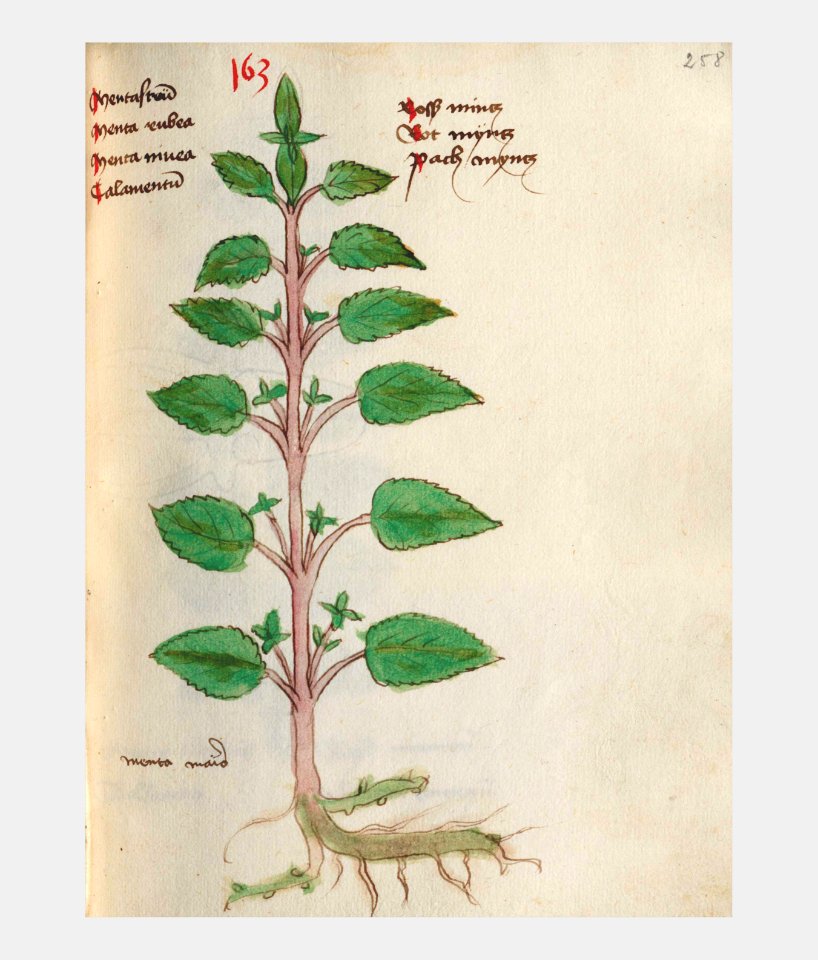 163
258
Mentastrū
Menta rubea
Menta nivea
Calamentū
Ross mintz
Rot myntz
Pach myntz
menta maio